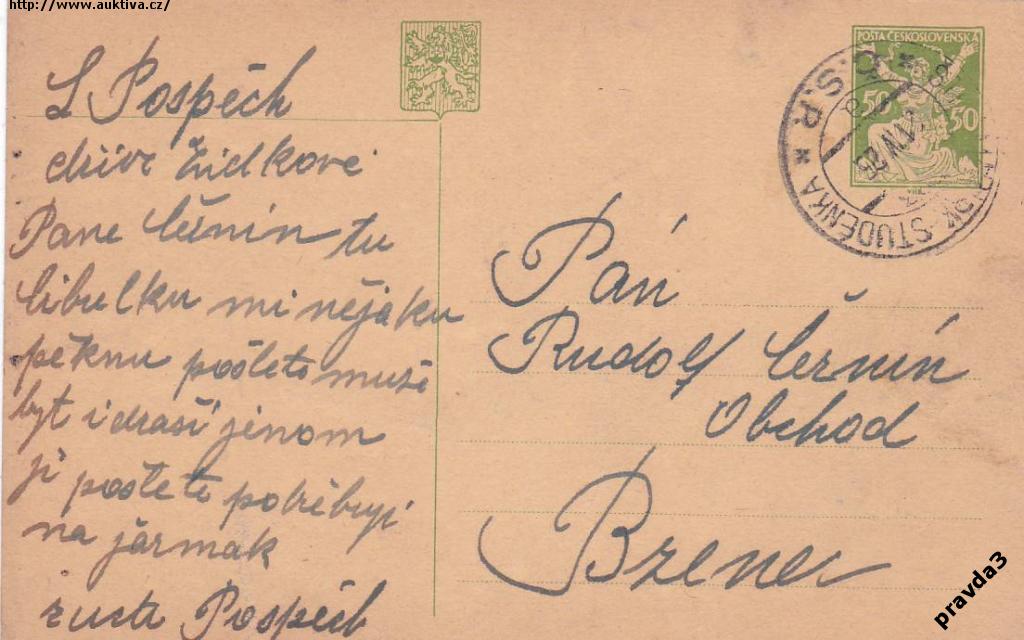 http://www.auktiva.cz/
L Pospěch
dřive Židkové
Pane Černín tu
Cibulku mi nějaku
pěknu pošlete muže
byt i draši jenom
ji pošlete potřebuji
na jarmak
zucta Pospěch
POŠTA ČESKOSLOVENSKÁ
50 50
Č.S.R.
STUDÉNKA
Pán
Rudolf Černín
Obchod
Bzenec
pravda3